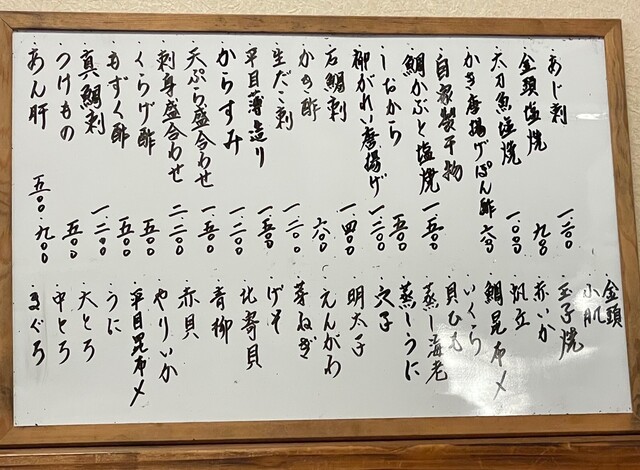 ・あじ刺 一、二〇〇
・金頭塩焼 九〇〇
・太刀魚塩焼 一、〇〇〇
・かき唐揚げぽん酢 六〇〇
・自家製干物
・鯛かぶと塩焼 一、五〇〇
・しおから 五〇〇
・柳がれい唐揚げ 一、二〇〇
・石鯛刺 一、四〇〇
・かき酢 六〇〇
・生だこ刺 一、二〇〇
・平目薄造り 一、五〇〇
・からすみ 一、二〇〇
・天ぷら盛合わせ 一、五〇〇
・刺身盛合わせ 二、二〇〇
・くらげ酢 五〇〇
・もずく酢 五〇〇
・真鯛刺 一、二〇〇
・つけもの 五〇〇
・あん肝 九〇〇
五〇〇
・金頭
・小肌
・玉子焼
・赤いか
・帆立
・鯛昆布〆
・いくら
・貝ひも
・蒸し海老
・蒸しうに
・穴子
・明太子
・えんがわ
・芽ねぎ
・げそ
・北寄貝
・青柳
・赤貝
・やりいか
・平目昆布〆
・うに
・大とろ
・中とろ
・まぐろ